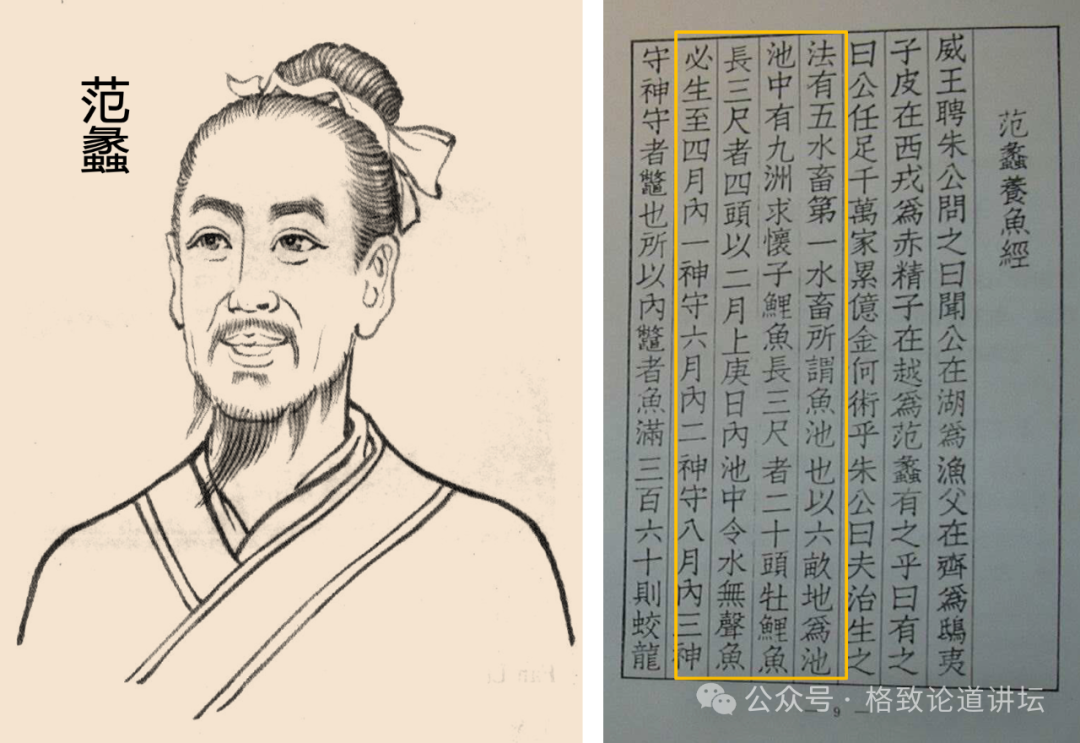 范蠡
范蠡養魚經
威王聘朱公問之曰聞公在湖爲漁父在齊爲鴟夷
子皮在西戎爲赤精子在越爲范蠡有之乎曰有之
曰公任足千萬家累億金何術乎朱公曰夫治生之
法有五水畜第一水畜所謂魚池也以六畝地爲池
池中有九洲求懷子鯉魚長三尺者二十頭牡鯉魚
長三尺者四頭以二月上庚日內池中令水無聲魚
必生至四月內一神守六月內二神守八月內三神
守神守者鼈也所以內鼈者魚滿三百六十則蛟龍
— 9 —
公众号 · 格致论道讲坛